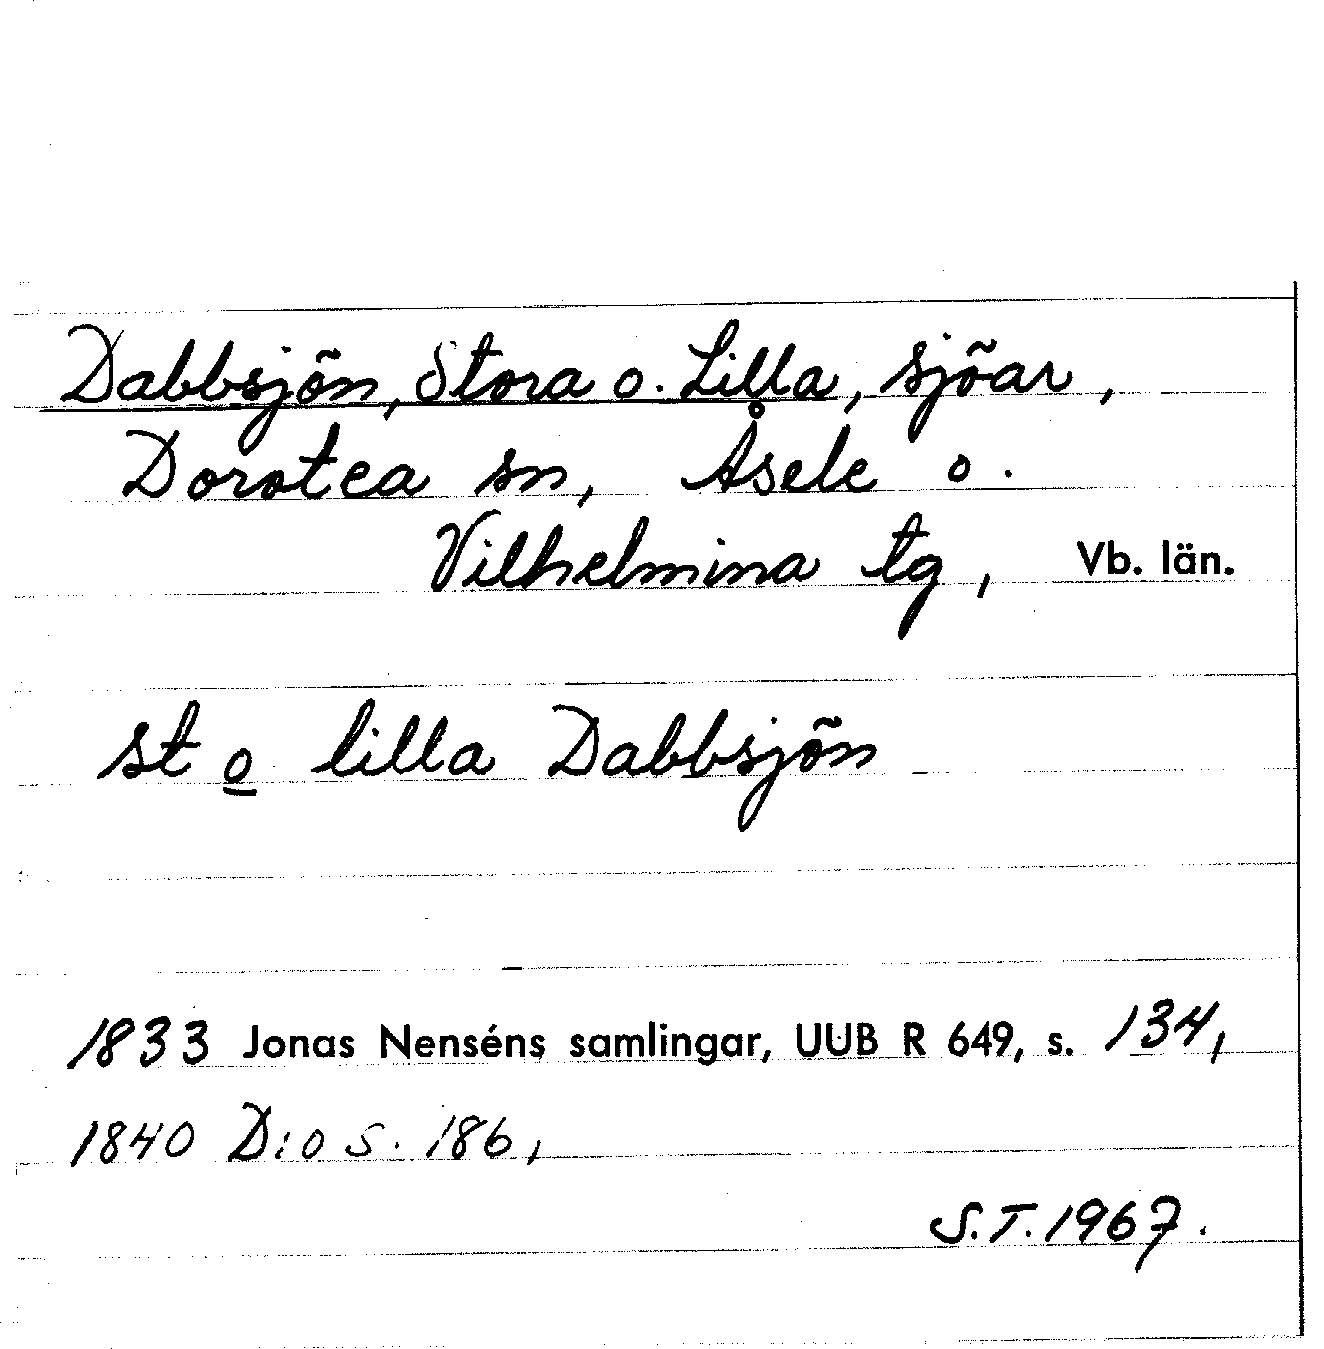 Dabbsjön, Stora o. Lilla, sjöar,
Dorotea sn, Åsele o.
Vilhelmina tg, Vb. län.
st o lilla Dabbsjön
1833 Jonas Nenséns samlingar, UUB R 649, s. 134,
1840 D:o s. 186,
S.T. 1967.